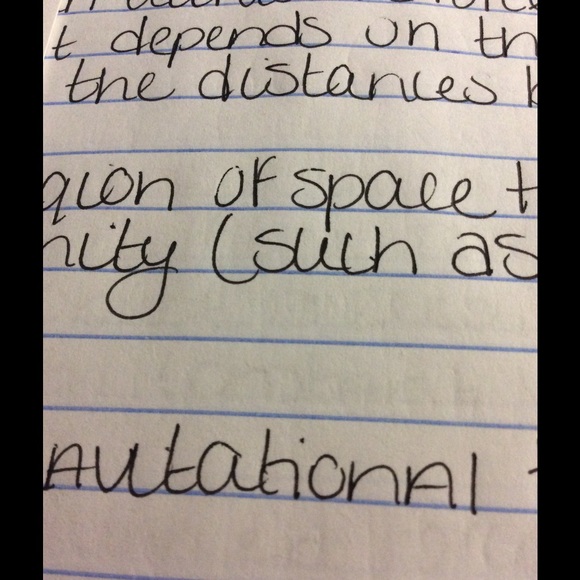 t depends on th
the distances b
gion of space t
nity (such as
AvitationAl